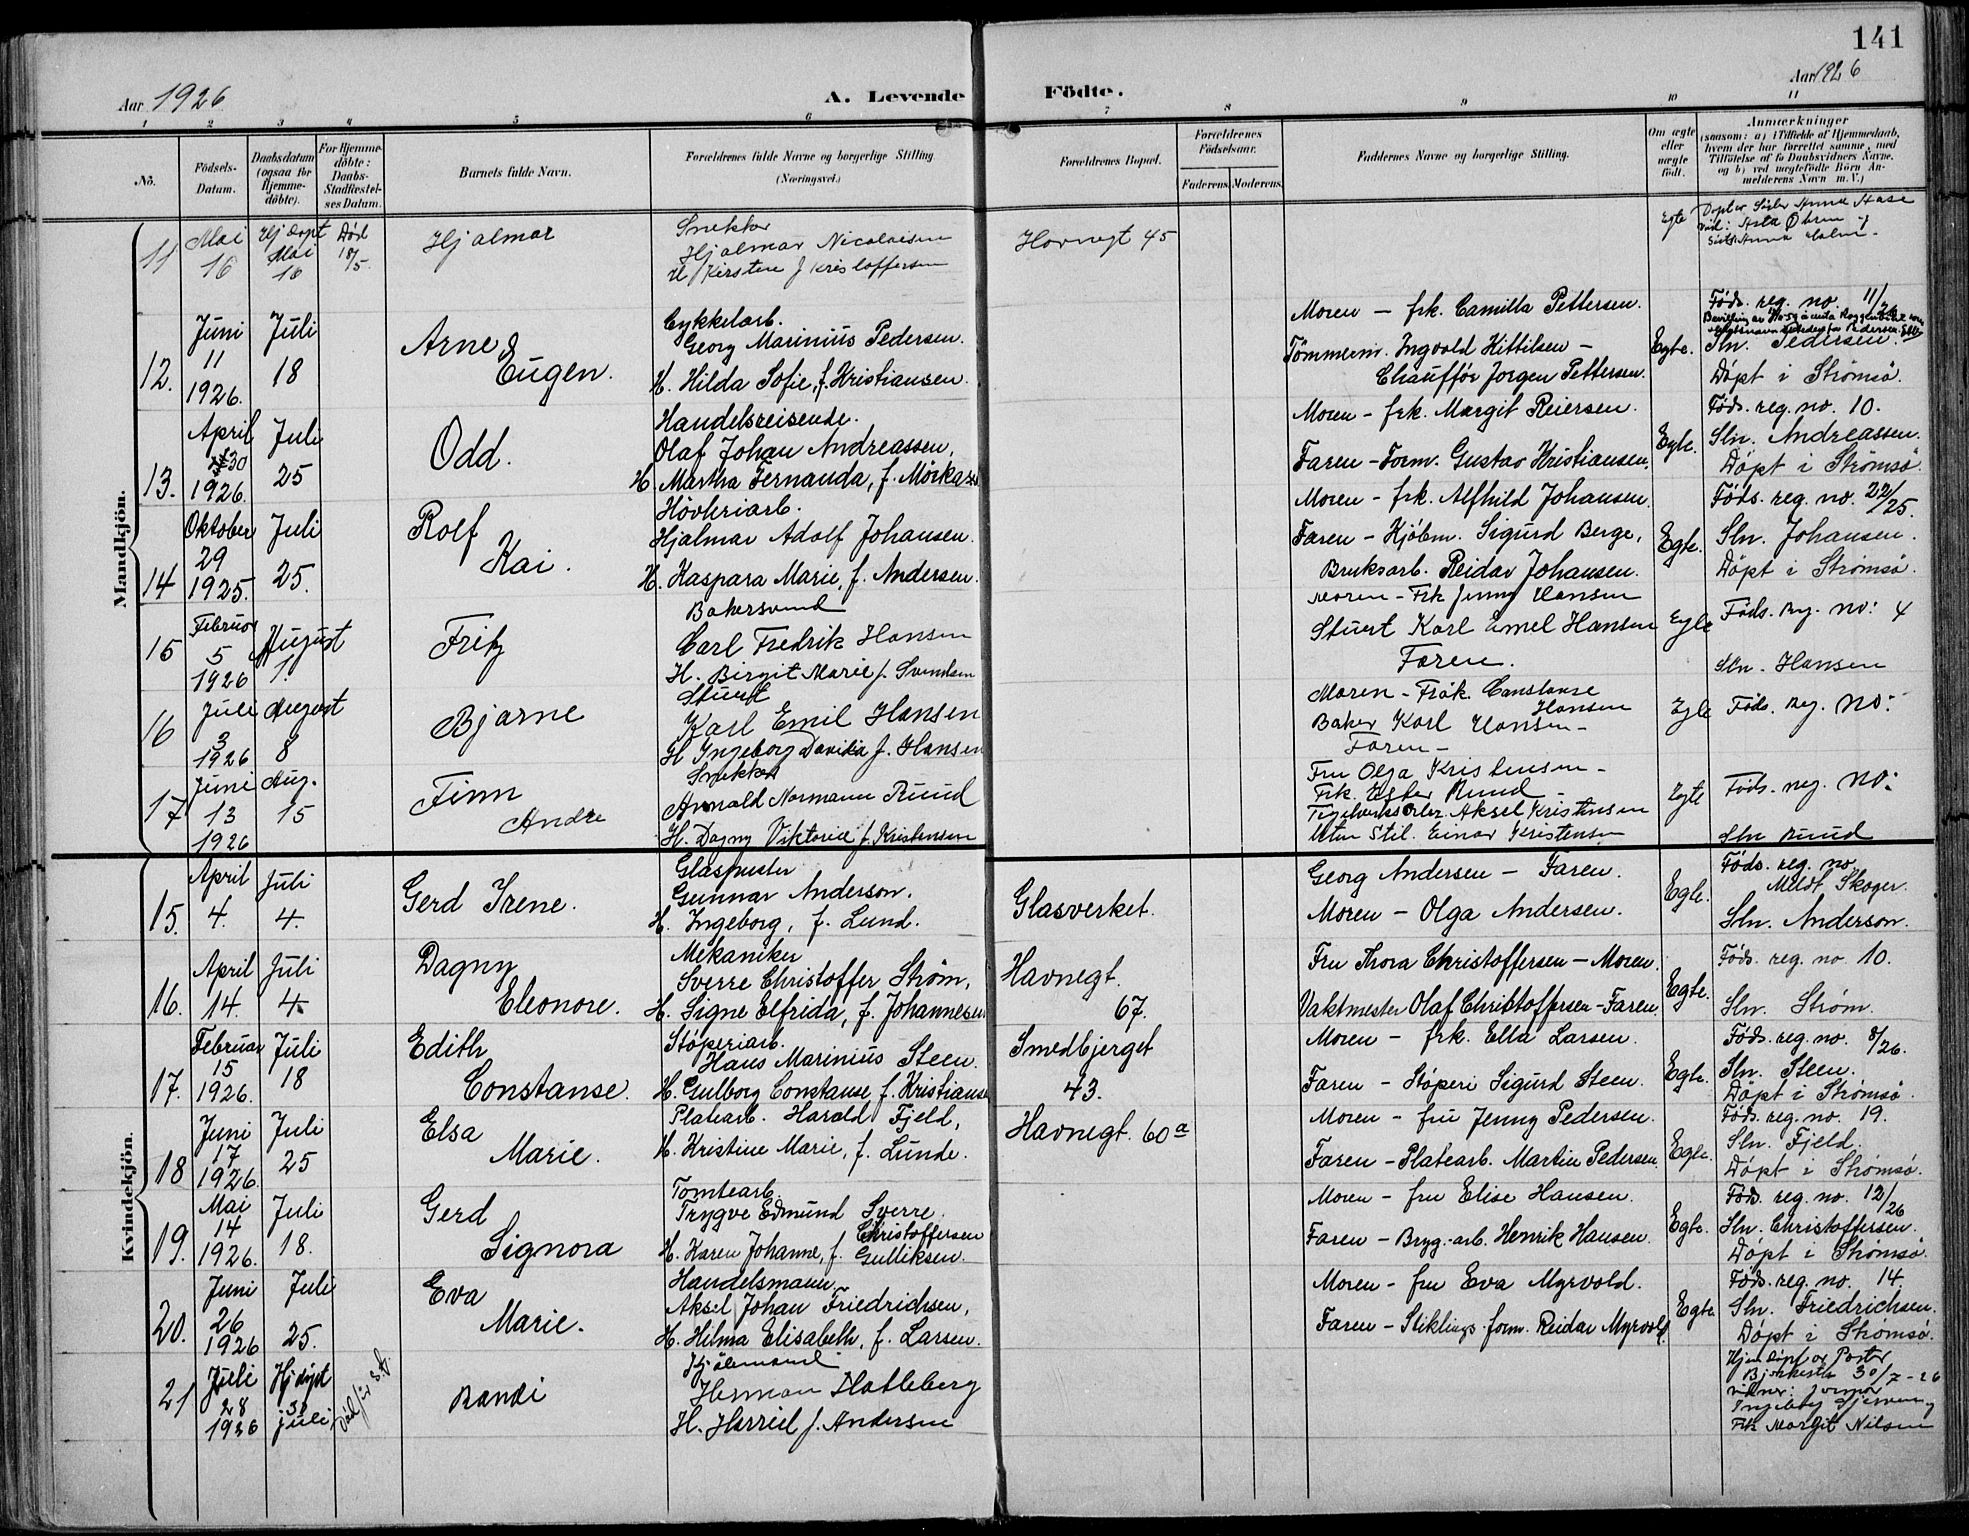 141
Aar 1926
A. Levende Födte.
Aar 1926
1 2 3 4 5 6 7 8 9 10 11
No.
Födsels-
Datum.
Daabsdatum
(ogsaa for
Hjemme-
döbte).
For Hjemme-
döbte:
Daabs-
Stadfæstel-
ses Datum.
Barnets fulde Navn.
Forældrenes fulde Navne og borgerlige Stilling
(Næringsvei.)
Forældrenes Bopæl.
Forældrenes
Födselsaar.
Faderens. Moderens.
Faddernes Navne og borgerlige Stilling.
Om ægte
eller
uægte
født.
Anmærkninger
(saasom: a) i Tilfælde af Hjemmedaab,
hvem der har forrettet samme, med
Tilföielse af to Daabsvidners Navne,
og b) ved uægtefödte Börn An-
melderens Navn m. V.)
Mandkjön.
11 Mai 16
Hj döpt Mai 16
Död 18/5.
Hjalmar
Snekker
Hjalmar Nicolaisen
H. Kirsten f Kristoffersen
Havnegt 45
Egte
Søster Anna Aase
Asta
Anna Holm
12. Juni 11 1926.
Juli 18
Arne Eugen.
Cykkelarb.
Georg Marinius Pedersen.
H. Hilda Sofie, f. Kristiansen.
Moren — frk. Camilla Pettersen.
Tömmerm. Ingvald Kittilsen —
Chaufför Jorgen Pettersen.
Egte.
Föds. reg. no. 11/26
Sln. Pedersen.
Döpt i Strömsö.
13. April 30 1926.
Juli 25
Odd.
Handelsreisende.
Olaf Johan Andreassen,
H. Martha Fernanda, f.
Moren — frk. Margit Reiersen.
Faren — Form. Gustav Kristiansen.
Egte.
Föds. reg. no. 10.
Sln. Andreassen.
Döpt i Strömsö
14 Oktober 29 1925.
Juli 25.
Rolf Kai.
Hövleriarb.
Hjalmar Adolf Johansen.
H. Kaspara Marie, f. Andersen.
Moren — frk. Alfhild Johansen.
Faren — Kjöbm. Sigurd Berge,
Bruksarb. Reidar Johansen.
Egte.
Föds. reg. no. 22/25.
Sln. Johansen.
Döpt i Strömsö.
15 Februar 5 1926
August 1.
Fritz
Bakersvend
Carl Fredrik Hansen
H. Birgit Marie f. Svendsen
Moren — Frk Jenny Hansen
Stuert Karl Emel Hansen
Faren.
Egte
Föds. reg. no: 4
Sln. Hansen
16 Juli 3 1926
August 8
Bjarne
Stuert
Karl Emil Hansen
H Ingeborg Davida f. Hansen
Moren — Frök. Constanse Hansen
Baker Karl Hansen —
Faren —
Egte
Föds. reg. no:
17 Juni 13 1926
Aug. 15
Finn Andre
Snekker
Arnold Normann Ruud
H. Dagny Viktoria f. Kristensen
Fru Olga Kristensen —
Frk. Ester Ruud —
Aksel Kristensen
Uten Stil. Einar Kristensen
Egte
Föds. reg. no:
Sln Ruud
Kvindekjön.
15. April 4.
Juli 4.
Gerd Irene.
Glaspuster
Gunnar Anderson.
H. Ingeborg, f. Lund.
Glasverket.
Georg Andersen — Faren.
Moren — Olga Andersen.
Egte.
Föds. reg. no
Meldt Skoger.
Sln. Anderson.
16. April 14.
Juli 4
Dagny Eleonore.
Mekaniker
Sverre Christoffer Ström,
H. Signe Elfrida, f. Johannesen
Havnegt. 67.
Fru Thora Christoffersen — Moren.
Vaktmester Olaf Christoffersen — Faren.
Egte.
Föds. reg. no. 10.
Sln. Ström.
17. Februar 15 1926.
Juli 18
Edith Constanse.
Støperiarb.
Hans Marinius Steen.
H. Gulborg Constanse f. Kristiansen
Smedbjerget 43.
Moren — frk. Ella Larsen.
Faren — Støperi Sigurd Steen.
Egte.
Föds. reg. no. 8/26.
Sln. Steen.
Döpt i Strömsö.
18 Juni 17 1926.
Juli 25
Elsa Marie.
Platearb. Harald Fjeld,
H. Kristine Marie, f. Lunde.
Havnegt. 60a
Moren — fru Jenny Pedersen.
Faren — Platearb. Martin Pedersen.
Egte.
Föds. reg. no. 19.
Sln. Fjeld.
Döpt i Strömsö.
19. Mai 14 1926.
Juli 18.
Gerd Signora
Tomtearb.
Trygve Edmund Sverre Christoffersen
H. Karen Johanne, f. Gulliksen.
Moren — fru Elise Hansen.
Faren — Bryg.-arb. Henrik Hansen.
Egte.
Föds. reg. no. 12/26
Sln. Christoffersen.
Döpt i Strömsö.
20. Juni 26 1926
Juli 25.
Eva Marie.
Handelsmann.
Aksel Johan Friedrichsen,
H. Hilma Elisabeth, f. Larsen.
Moren — fru Eva Myrvold.
Faren — Stiklings-form. Reidar Myrvold.
Egte.
Föds. reg. no. 14.
Sln. Friedrichsen.
Döpt i Strömsö.
21 Juli 28 1926
Hj döpt 30 juli
Randi
Herman Hatleberg
H. Harriet f. Andersen
Hjem döpt av Pastor
30/7-26
vidner: Jormor
Ingeborg
Frk Margit Nilsen